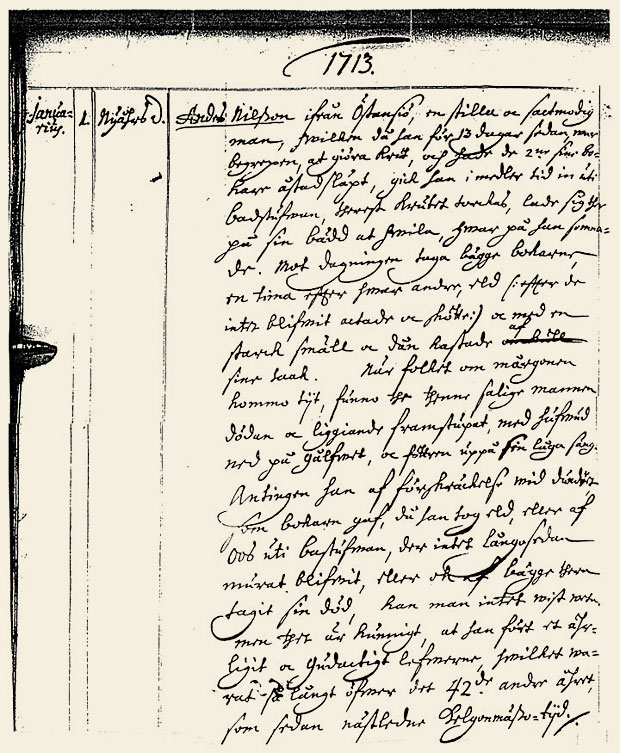 1713.
Janua-
rius. 1. Nyåhrs d. Anders Nilsson ifrån Östansiö, en stilla oc sactmodig
man, hwilken då han för 13 dagar sedan, war
begrepen, at giöra krut, och hade de 2ne sine bo-
kare åstadsläpt, gick han i medler tid in uti
badstufwan, therest krutet torkas, lade sig ther
på sin bädd at hwila, hwar på han somna-
de. Mot dagningen toga bägge bokarne,
en tima efter hwar andre, eld (: efter de
intet blifwit actade oc skötte :) oc med en
starck smäll oc dån kastade af
sine taak. När folket om morgonen
kommo tijt, funno the thenne salige mannen
dödan oc liggiande framstupat, med hufwud
ned på gålfwet, oc fötren uppå sin låga säng.
Antingen han af förskräckelse wid dånet,
som bokarn gaf, då han tog eld, eller af
oos uti bastufwan, der intet långosedan
murat blifwit, eller ock af bägge them
tagit sin död, kan man intet wist weta.
men thet är kunnigt, at han fört et ähr-
ligit oc gudactigt lefwerne, hwilket wa-
rat så långt öfwer det 42de andre åhret,
som sedan nästledne Helgonmässo-tijd.